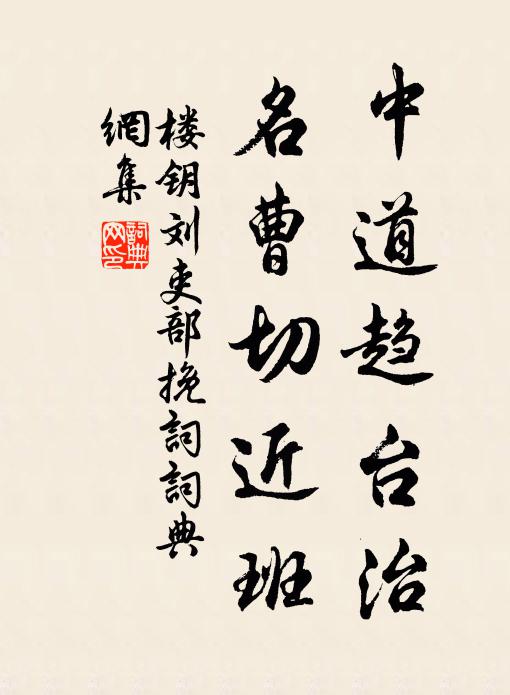 中道趋台治
名曹切近班
楼钥刘吏部挽詞詞典
網集
詞典网印